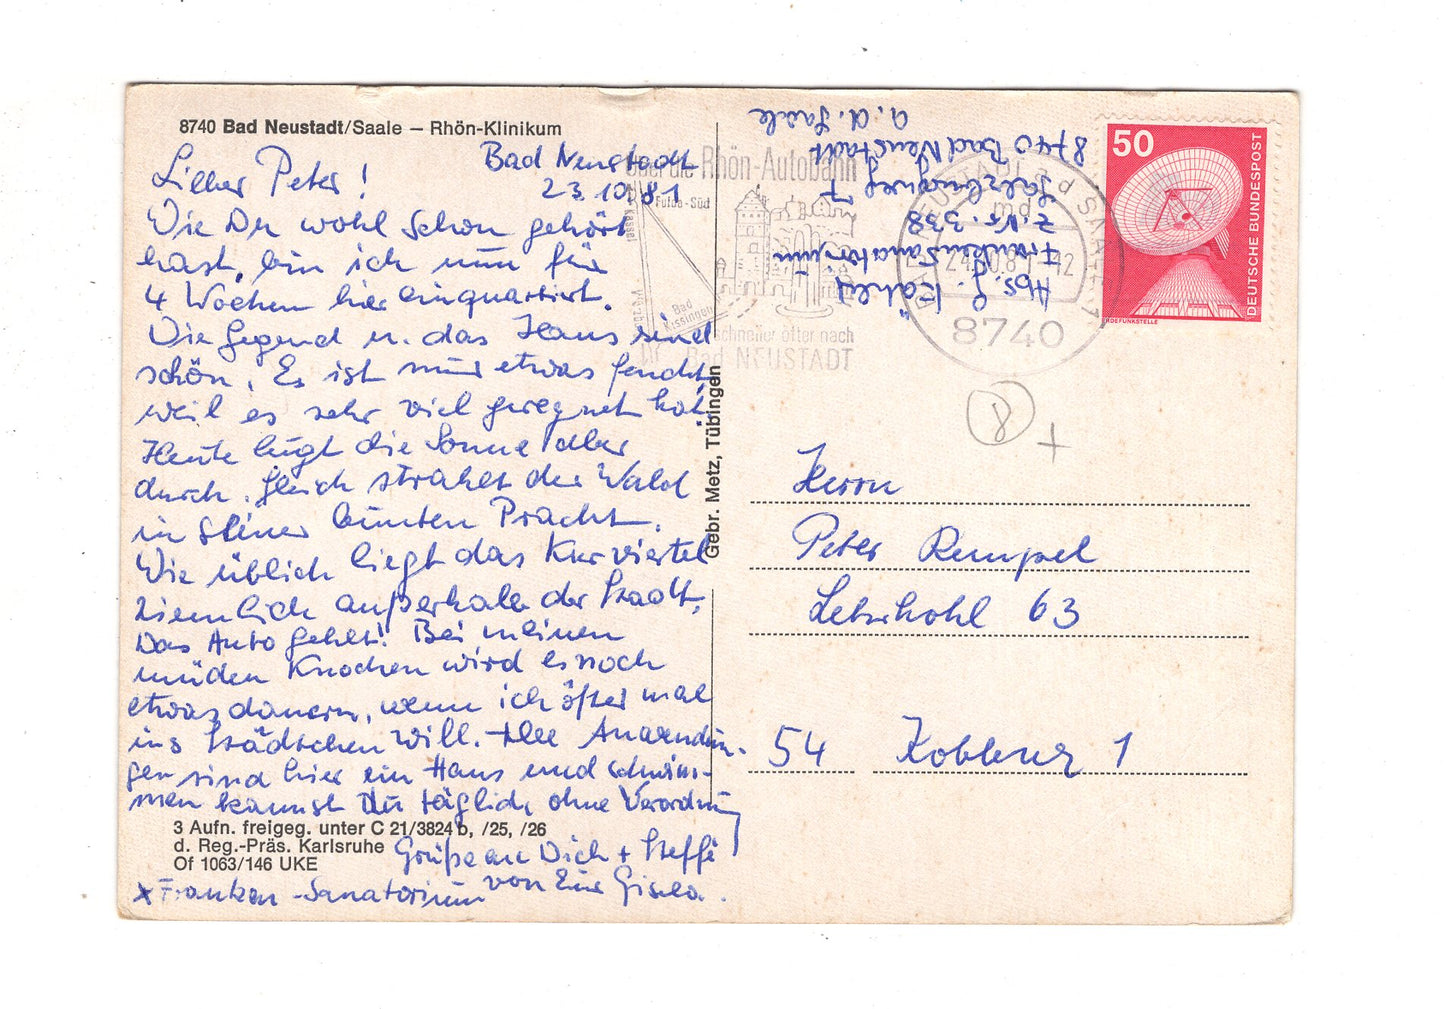 8740 Bad Neustadt/Saale – Rhön-Klinikum
Bad Neustadt
23.10.81
Lieber Peter!
Wie Du wohl schon gehört
hast, bin ich nun für
4 Wochen hier einquartiert.
Die Gegend u. das Haus sind
schön. Es ist nur etwas feucht,
weil es sehr viel geregnet hat.
Heute lugt die Sonne aber
durch. Gleich strahlt der Wald
in seiner bunten Pracht.
Wie üblich liegt das Kurviertel
ziemlich außerhalb der Stadt,
Das Auto fehlt! Bei meinen
müden Knochen wird es noch
etwas dauern, wenn ich öfter mal
ins Städtchen will. Alle Anwendun-
gen sind hier im Haus und schwim-
men kannst Du täglich, ohne Verordnung
Grüße an Dich + Steffi
von Eure Gisela.
x Franken-Sanatorium
3 Aufn. freigeg. unter C 21/3824 b, /25, /26
d. Reg.-Präs. Karlsruhe
Of 1063/146 UKE
Gebr. Metz, Tübingen
über die Rhön-Autobahn
Kassel
Fulda-Süd
Bad
Kissingen
schneller öfter nach
Bad NEUSTADT
8740
Abs. G.
Frankensanatorium
Z. Nr. 338
Salzburgweg 7
8740 Bad Neustadt
a. d. Saale
50
DEUTSCHE BUNDESPOST
ERDEFUNKSTELLE
8
+
Herrn
Peter Rempel
63
54 Koblenz 1